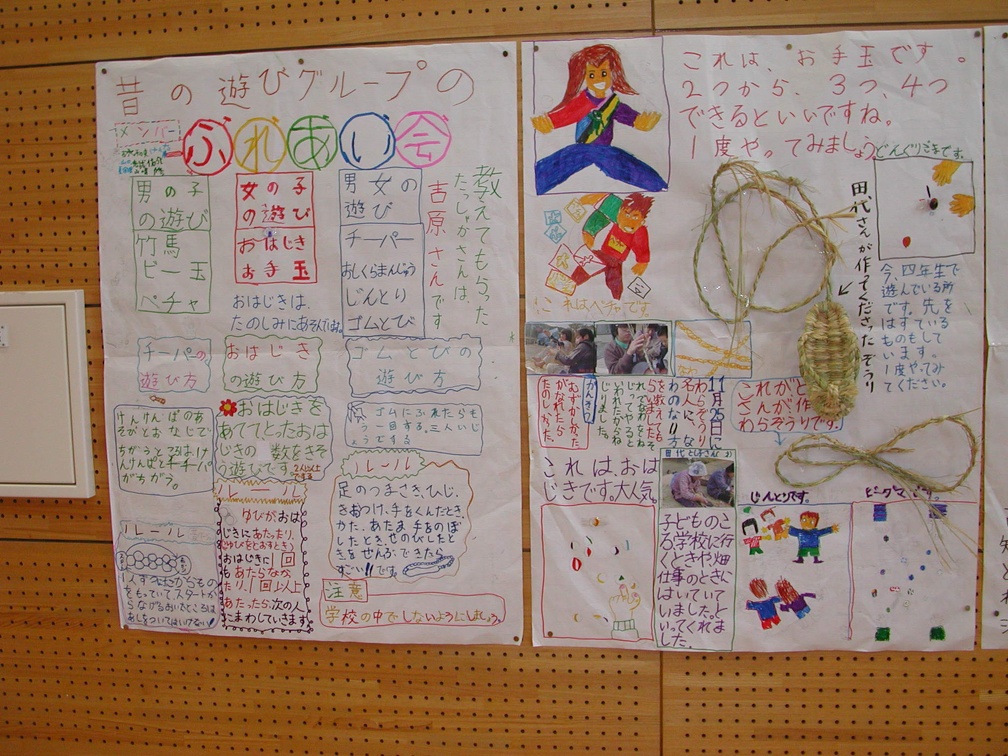 昔の遊びグループの
メンバー
ふれあい会
男の子
の遊び
竹馬
ビー玉
ペチャ
女の子
の遊び
おはじき
お手玉
男女の
遊び
チーパー
おしくらまんじゅう
じんとり
ゴムとび
教えてもらった
たっしゃがさんは、
吉原さんです
おはじきは、
たのしみにあそんでね。
チーパーの
遊び方
おはじき
の遊び方
ゴムとびの
遊び方
けんけんぱのあ
そびとおなじで
ちがうところはけ
んけんぱとチーパー
がちがう。
おはじきを
あててとったおは
じきの数をきそ
う遊びです。
ルール
ゆびがおは
じきにあたったり、
おはじきに1回
もあたらなか
ったり、1回以上
あたったら、次の人
にまわしていきます。
ルール
足のつまさき、ひじ、
きおつけ、手をくんだとき、
かた、あたま、手をのば
したとき、せのびしたと
きをぜんぶできたら
すごい!!です。
ルール
注意
学校の中でしないようにしましょう。
これは、お手玉です。
2つから、3つ、4つ
できるといいですね。
1度やってみましょう
どんぐりごまです。
これはペチャです。
田代さんが作ってくださったぞうり
今、四年生で
遊んでいる所
です。先を
はすている
ものもして
います。
1度やってみ
てください。
11月25日に
わらぞうり
名人に、
わのない方
を教えても
らいました。
かんそう
むずかしかった
がなれたら
たのしかった。
わらぞうりです。
これは、おは
じきです。大人気。
田代としさん
子どものこ
ろ、学校に行
くときや、畑
仕事のときに
はいていて
いました。と
いってくれま
した。
じんとりです。